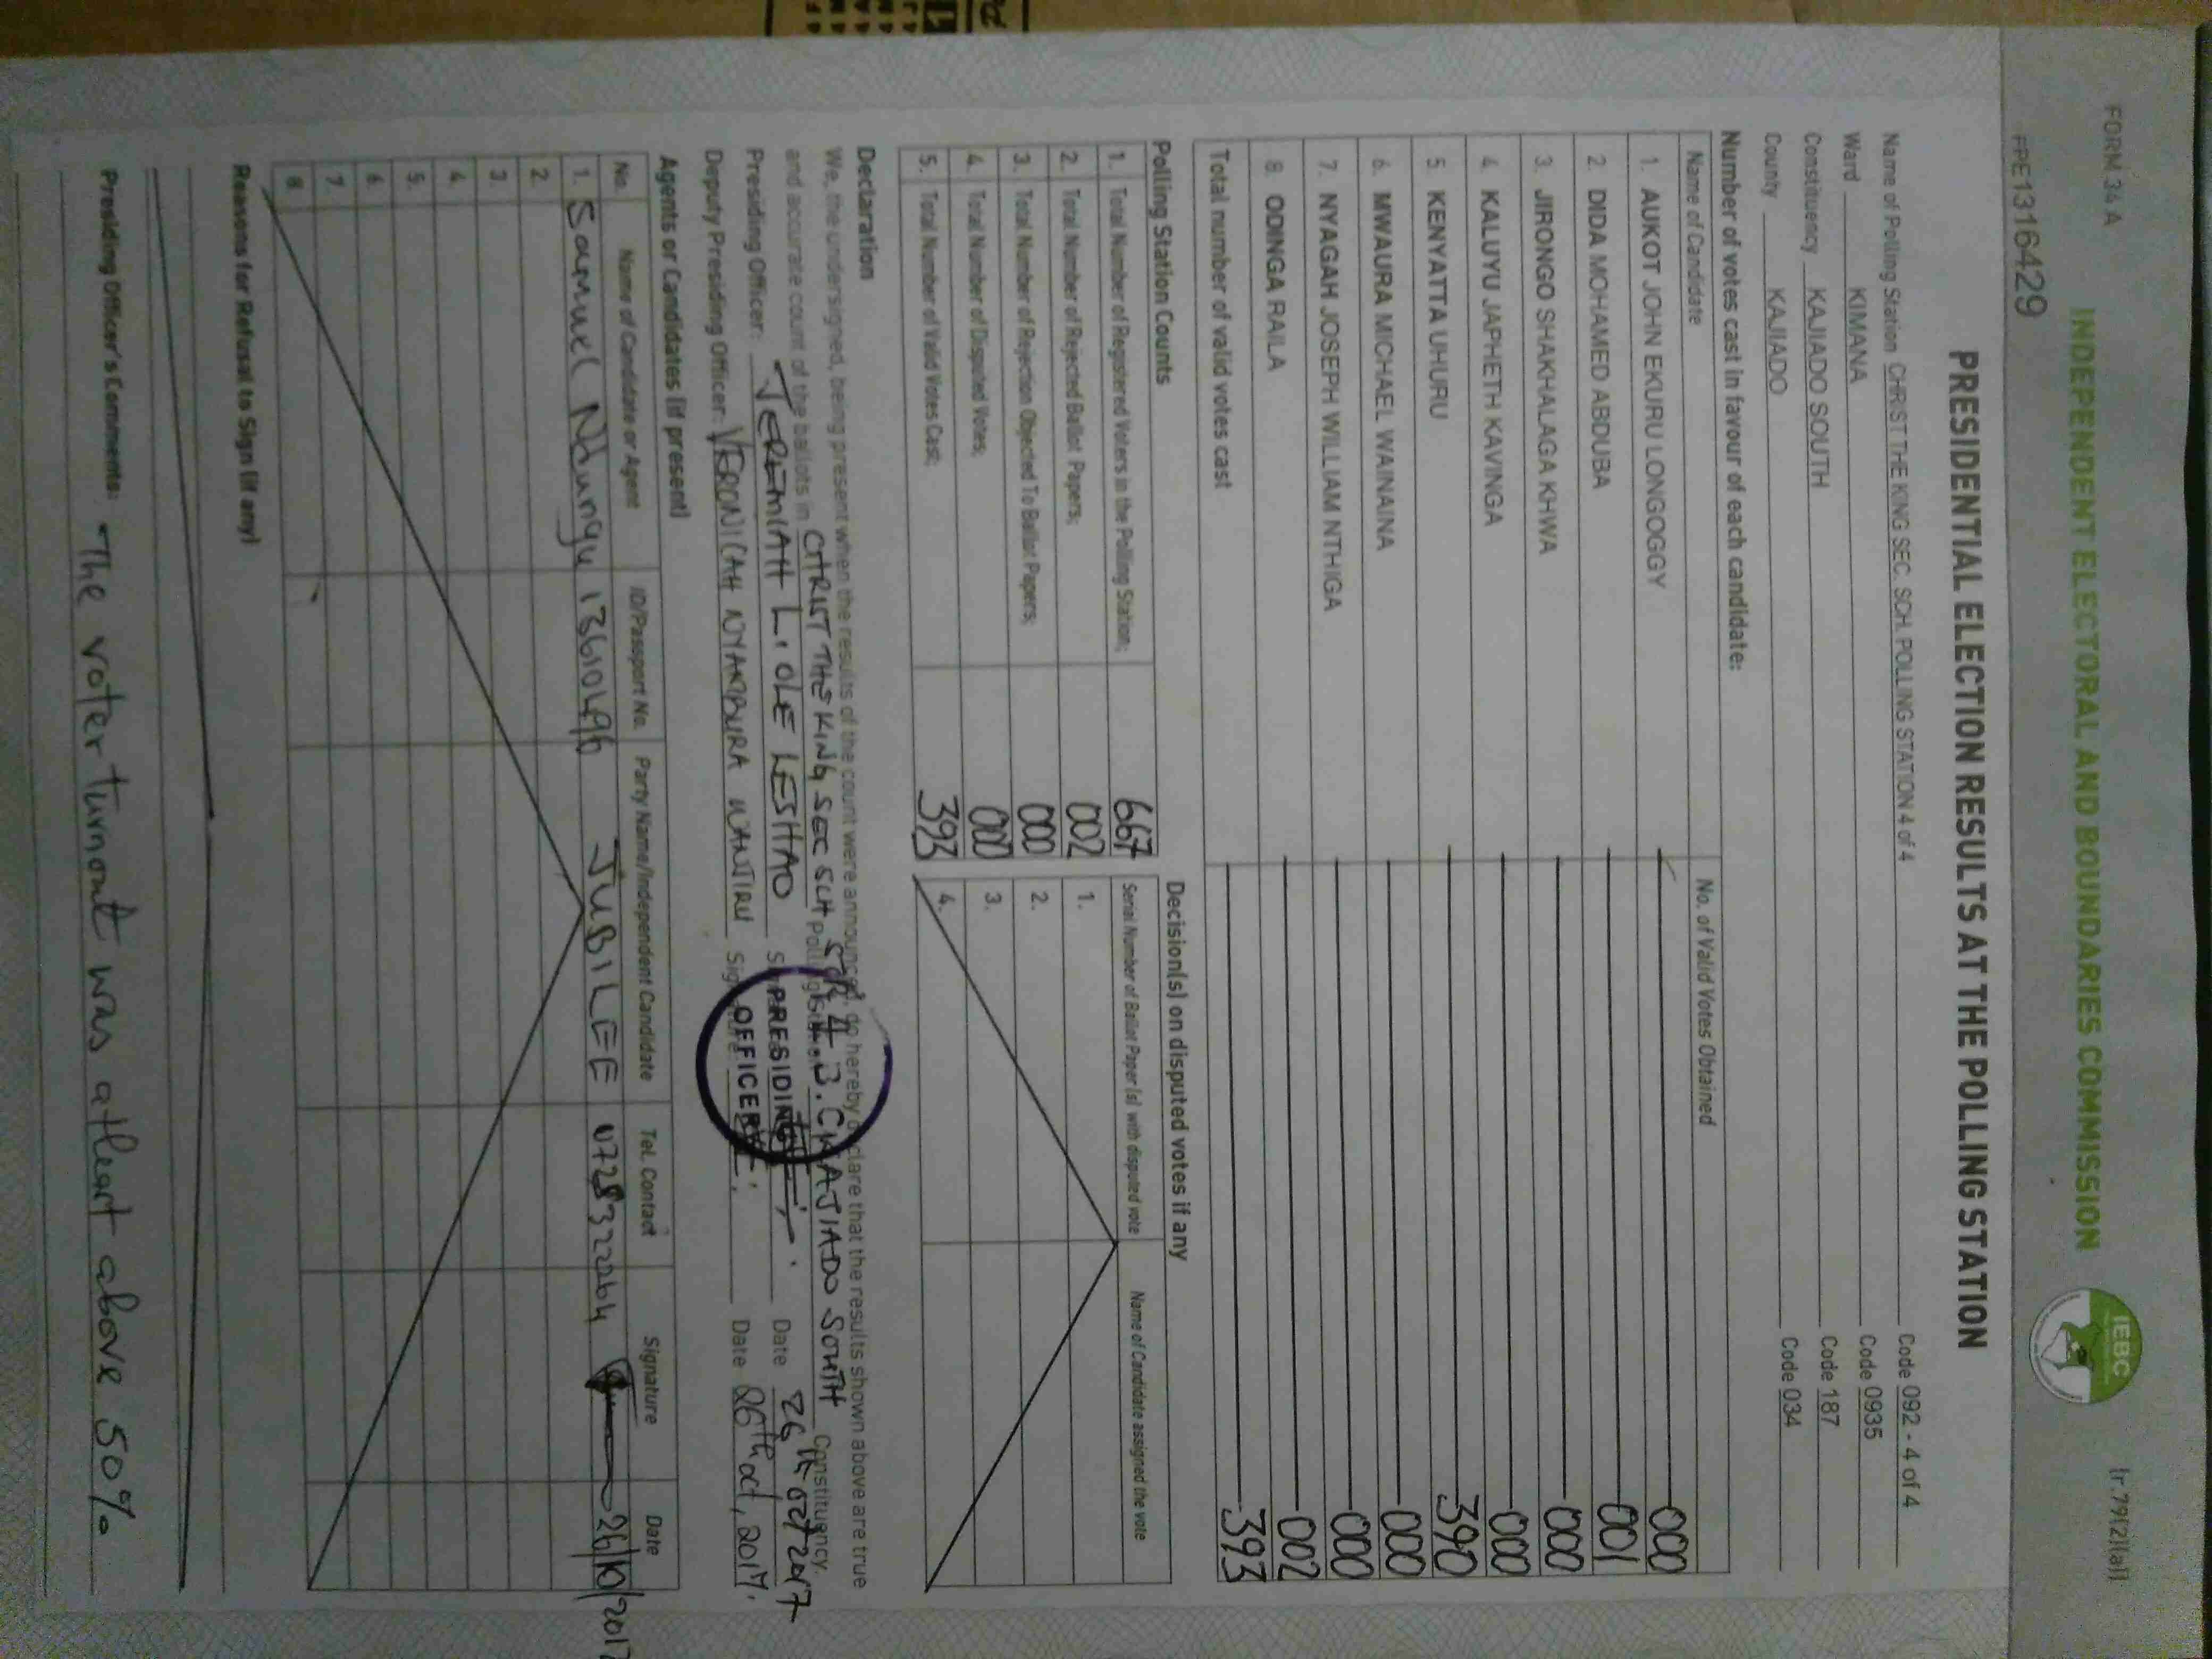 FORM 34 A
[r.79(2)(a)]
INDEPENDENT ELECTORAL AND BOUNDARIES COMMISSION
IEBC
FPE1316429
PRESIDENTIAL ELECTION RESULTS AT THE POLLING STATION
Name of Polling Station CHRIST THE KING SEC. SCH. POLLING STATION 4 of 4 Code 092 - 4 of 4
Ward KIMANA Code 0935
Constituency KAJIADO SOUTH Code 187
County KAJIADO Code 034
Number of votes cast in favour of each candidate:
Name of Candidate No. of Valid Votes Obtained
1. AUKOT JOHN EKURU LONGOGGY 000
2. DIDA MOHAMED ABDUBA 001
3. JIRONGO SHAKHALAGA KHWA 000
4. KALUYU JAPHETH KAVINGA 000
5. KENYATTA UHURU 390
6. MWAURA MICHAEL WAINAINA 000
7. NYAGAH JOSEPH WILLIAM NTHIGA 000
8. ODINGA RAILA 002
Total number of valid votes cast 393
Polling Station Counts
1. Total Number of Registered Voters in the Polling Station; 667
2. Total Number of Rejected Ballot Papers; 002
3. Total Number of Rejection Objected To Ballot Papers; 000
4. Total Number of Disputed Votes; 000
5. Total Number of Valid Votes Cast; 393
Decision(s) on disputed votes if any
Serial Number of Ballot Paper (s) with disputed vote Name of Candidate assigned the vote
1.
2.
3.
4.
Declaration
We, the undersigned, being present when the results of the count were announced, do hereby declare that the results shown above are true
and accurate count of the ballots in CHRIST THE KING SEC SCH Polling Station KAJIADO SOUTH Constituency.
Presiding Officer: JEREMIAH L. OLE LESHAO Date 26th OCT 2017
Deputy Presiding Officer: VERONICAH NYAMBURA WANJIRU Date 26th Oct, 2017.
PRESIDING
OFFICER
Agents or Candidates (if present)
No. Name of Candidate or Agent ID/Passport No. Party Name/Independent Candidate Tel. Contact Signature Date
1. Samuel Ndungu 13610496 JUBILEE 0728322264 26/10/2017
2.
3.
4.
5.
6.
7.
8.
Reasons for Refusal to Sign (if any)
Presiding Officer's Comments: The voter turnout was atleast above 50%